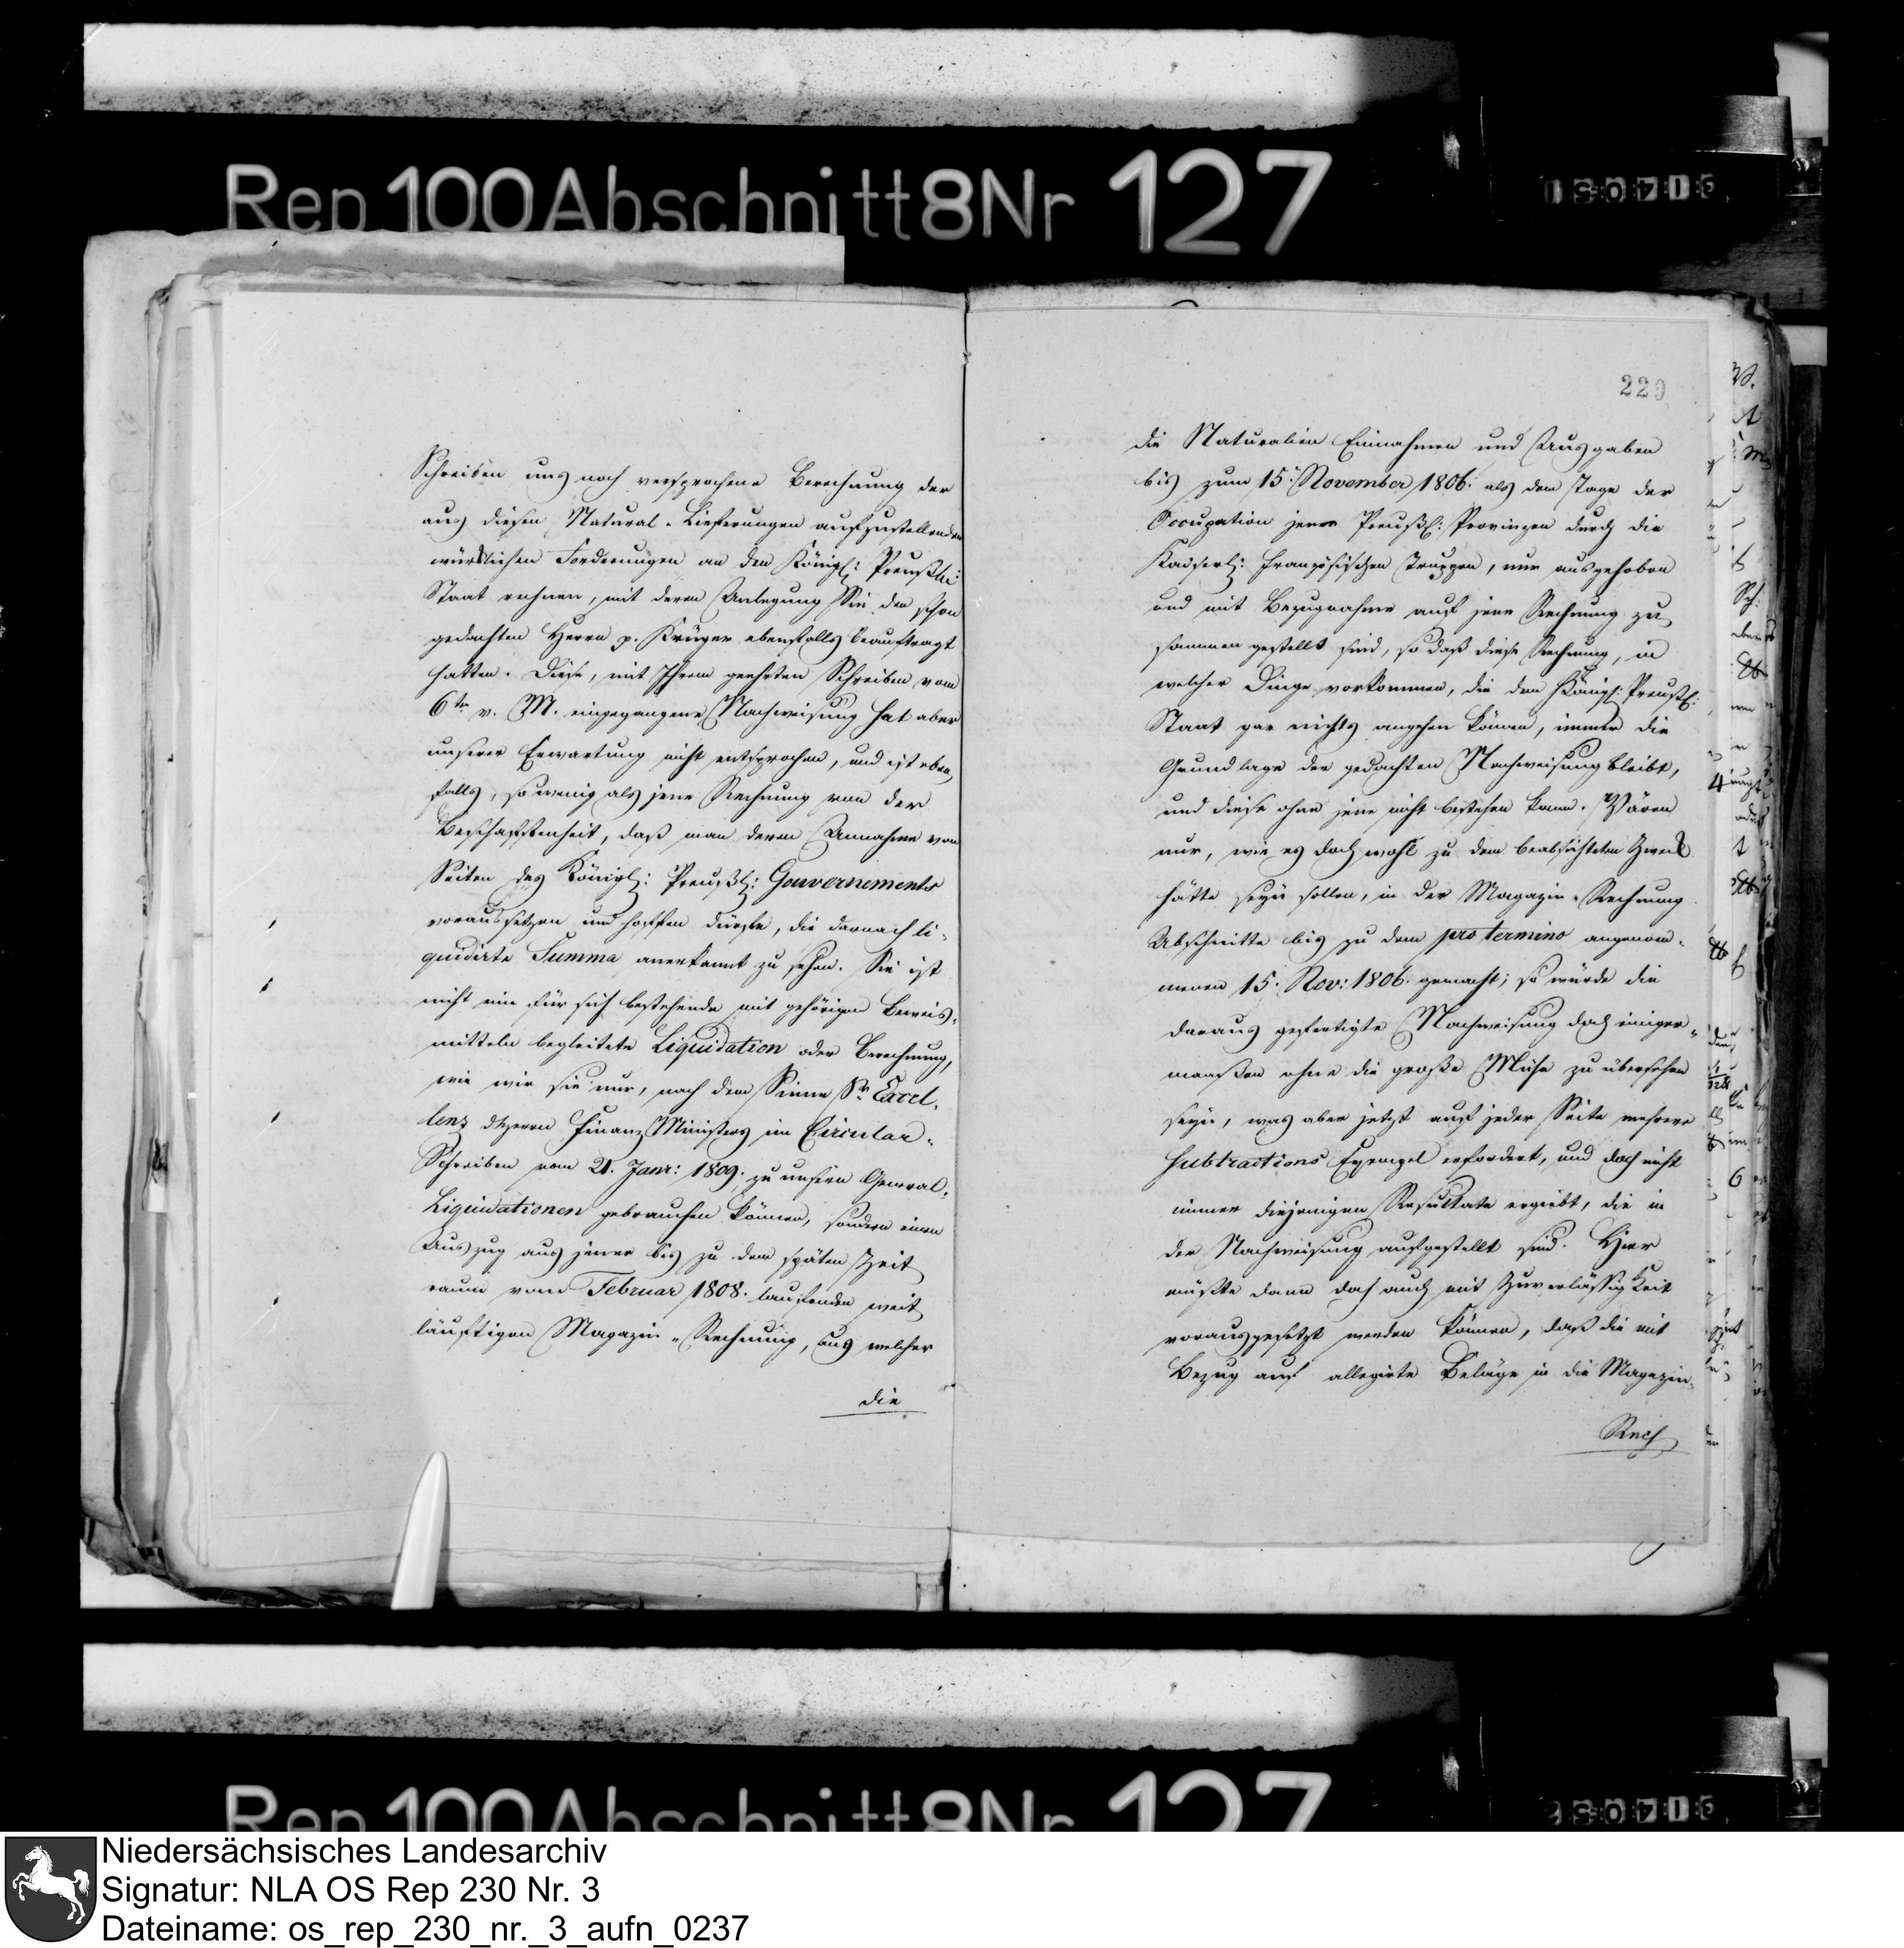 Rep 100 Abschnitt 8 Nr 127
220
Schreiben uns noch versprochene Berechnung der
aus diesen Natural-Lieferungen aufzustellenden
würklichen Forderungen an den Königl: Preußl:
Staat rechnen, mit deren Anlegung Sie den schon
gedachten Herrn p. Krüger ebenfalls beauftragt
hatten. Diese, mit Ihrem geehrten Schreiben vom
6ten v. M. eingegangene Nachweisung hat aber
unserer Erwartung nicht entsprochen, und ist eben
falls, so wenig als jene Rechnung von der
Beschaffenheit, daß man deren Annahme von
Seiten des Königl: Preußl: Gouvernements
voraussetzen und hoffen dürfte, die darnach li-
quidirte Summa anerkannt zu sehen. Sie ist
nicht eine für sich bestehende mit gehörigen Beweis-
mitteln begleitete Liquidation oder Berechnung,
wie wir sie nur, nach dem Sinne Sr. Excel-
lenz des Herrn Finanz Ministers im Circular-
Schreiben vom 21. Janr: 1809. zu unsern General-
Liquidationen gebrauchen können, sondern einen
Auszug aus jener bis zu dem späten Zeit
raum vom Februar 1808. laufenden weit
läuftigen Magazin-Rechnung, aus welcher
die
die Naturalien Einnahmen und Ausgaben
bis zum 15. November 1806. als dem Tage der
Occupation jener Preußl: Provinzen durch die
Kaiserl: französischen Truppen, nur ausgehoben
und mit Bezugnahme auf jene Rechnung zu
sammen gestellt sind, so daß diese Rechnung, in
welcher Dinge vorkommen, die dem Königl: Preußl:
Staat gar nichts angehen können, immer die
Grundlage der gedachten Nachweisung bleibt,
und diese ohne jene nicht bestehen kann. Wären
nur, wie es doch wohl zu dem beabsichteten Zweck
hätte seyn sollen, in der Magazin-Rechnung
Abschnitte bis zu dem pro termino angenom-
menen 15. Nov: 1806. gemacht; so würde die
daraus gefertigte Nachweisung doch einiger-
maaßen ohne die große Mühe zu übersehen
seyn, was aber jetzt auf jeder Seite mehrere
Subtractions Exempel erfordert, und doch nicht
immer diejenigen Resultate ergiebt, die in
der Nachweisung aufgestellt sind. Hier
müßte dann doch auch mit Zuverlässigkeit
vorausgesetzt werden können, daß die mit
Bezug auf allegirte Beläge in die Magazin-
Rech
Rep 100 Abschnitt 8 Nr 127
Niedersächsisches Landesarchiv
Signatur: NLA OS Rep 230 Nr. 3
Dateiname: os_rep_230_nr._3_aufn_0237